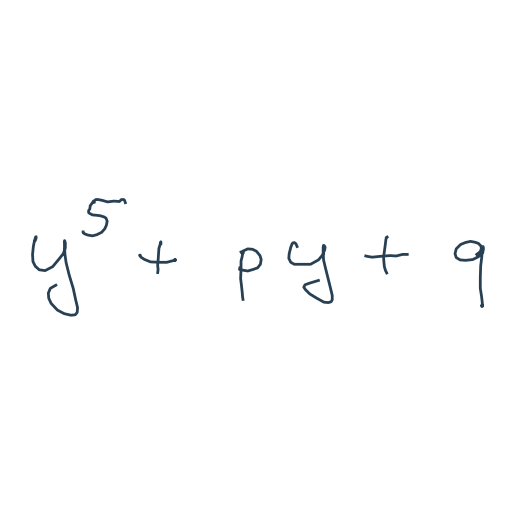 y⁵ + py + q